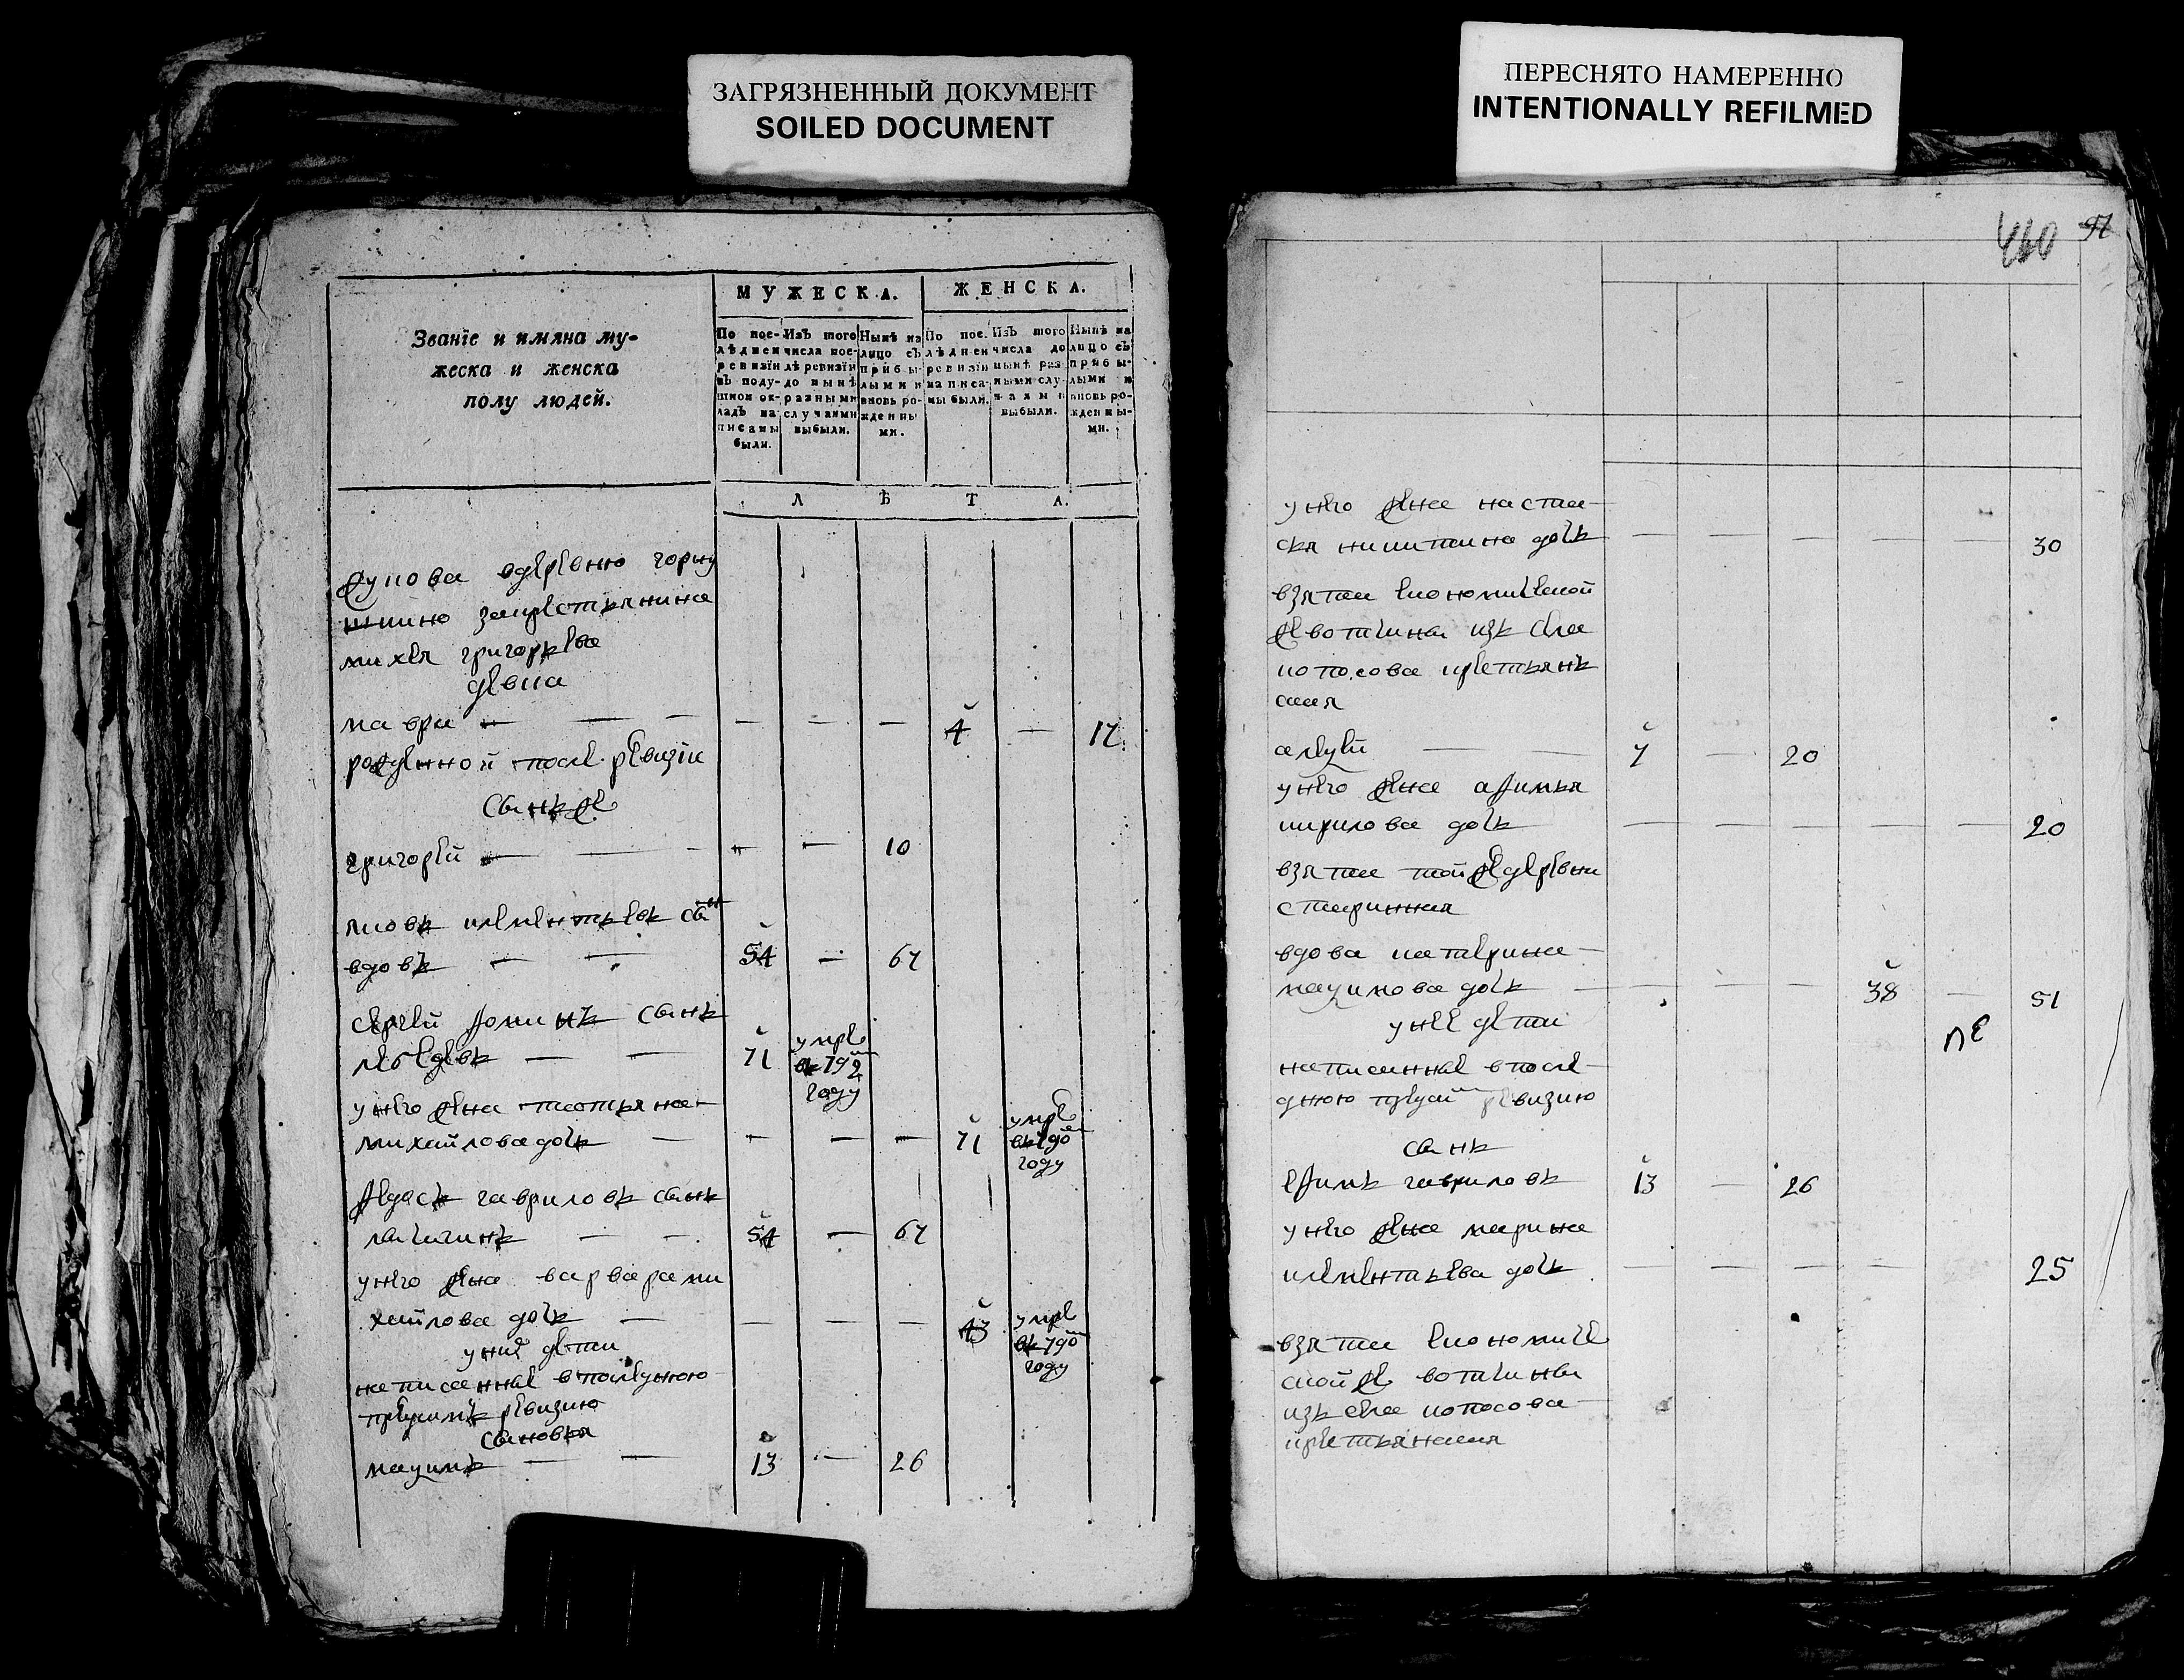 ЗАГРЯЗНЕННЫЙ ДОКУМЕНТ
SOILED DOCUMENT
ПЕРЕСНЯТО НАМЕРЕННО
INTENTIONALLY REFILMED
Званїе и имяна му-
жеска и женска
полу людей.
МУЖЕСКА.
ЖЕНСКА.
По пос-
лѣдней
ревизїи
въ поду-
шной ок-
ладъ на-
писаны
были.
Изъ того
числа пос-
лѣ ревизїи
до нынѣ
разными
случаями
выбыли.
Нынѣ на
лицо съ
прибы-
лыми и
вновь ро-
жденны-
ми.
По пос-
лѣдней
ревизїи
написа-
ны были.
Изъ того
числа до
нынѣ раз-
ными слу-
чаями
выбыли.
Нынѣ на
лицо съ
прибы-
лыми и
вновь ро-
жденны-
ми.
ЛѢТА.
вдеревню горну
михея григорьева
девка
мавра 4 17
рожденной после ревизїи
сынъ же
григорей 10
климентьевъ сынъ
вдовъ 54 67
сергей фоминъ сынъ
лебедевъ 71 умре
въ 792
году
унего жена татьяна
михайлова дочь 71 умре
въ 790
году
гавриловъ сынъ
54 67
унего жена варвара ми
хайлова дочь 43 умре
въ 790
году
уних дети
написанные впоследнюю
ревизию
сыновья
максимъ 13 26
460 51
унего жена настас
ья никитина дочь 30
взята економической
же вотчины изъ села
кресьтьянъ
ская
алексей 7 20
унего жена афимья
кирилова дочь 20
взята той же деревни
старинная
вдова катерина
максимова дочь 38 51
унее дети
написанные впосле
днюю ревизию
сынъ
ефимъ гавриловъ 13 26
унего жена марина
климентьева дочь 25
взята економиче
ской же вотчины
изъ села